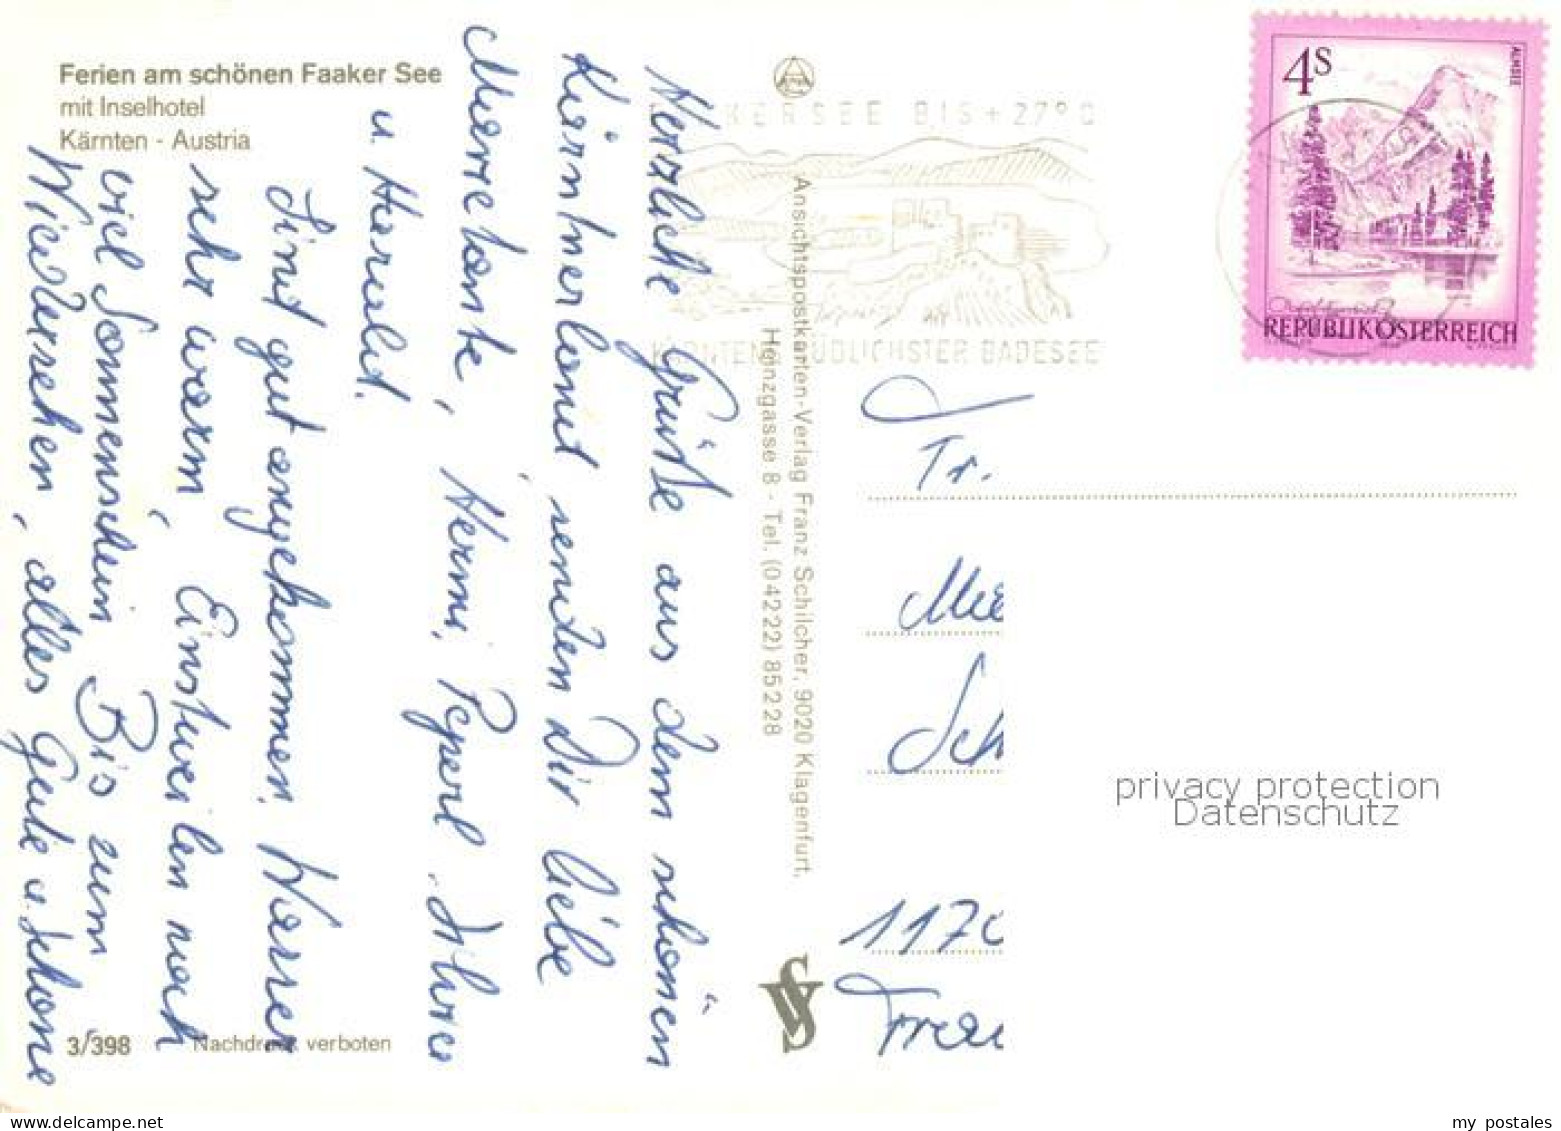 Ferien am schönen Faaker See
mit Inselhotel
Kärnten - Austria
Herzliche Grüße aus dem schönen
Kärntnerland, senden Dir liebe
Marretante, Hermi, Peperl,
u. Harald.
Sind gut angekommen, Wasser
sehr warm, Einstweilen noch
viel Sonnenschein Bis zum
Wiedersehen, alles Gute u. schöne
3/398
Nachdruck verboten
Ansichtspostkarten-Verlag Franz Schilcher, 9020 Klagenfurt,
Heinzgasse 8 - Tel. (04222) 85228
KERSEE BIS +27°C
KÄRNTENS SÜDLICHSTER BADESEE
4S
ALMSEE
REPUBLIK ÖSTERREICH
Fr.
Sch
1170
privacy protection
Datenschutz
my postales
www.delcampe.net